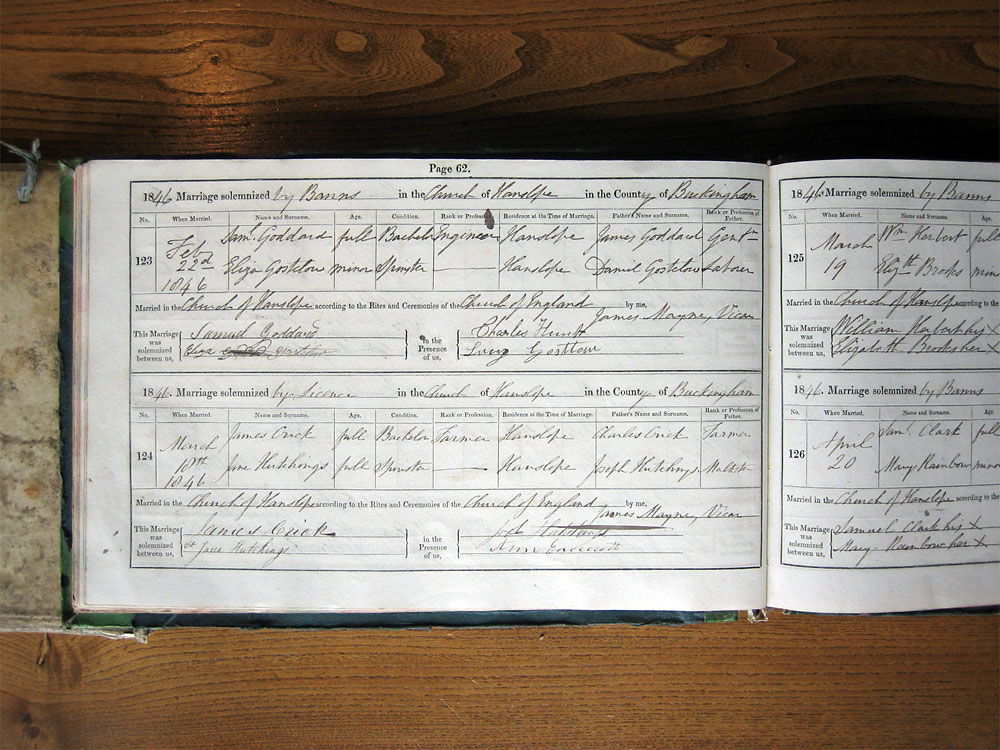 Page 62.
1846. Marriage solemnized by Banns in the Church of Hanslope in the County of Buckingham
No. When Married. Name and Surname. Age. Condition. Rank or Profession. Residence at the Time of Marriage. Father's Name and Surname. Rank or Profession of Father.
123 Feb 22d 1846
Saml Goddard full Bachelor Engineer Hanslope James Goddard Gentn
Eliza Gostelow minor Spinster — Hanslope Daniel Gostelow Laborer
Married in the Church of Hanslope according to the Rites and Ceremonies of the Church of England by me,
James Mayne, Vicar
This Marriage was solemnized between us, Samuel Goddard in the Presence of us, Charles Hunt
Eliza Lucy Gostlow
1846. Marriage solemnized by Licence in the Church of Hanslope in the County of Buckingham
No. When Married. Name and Surname. Age. Condition. Rank or Profession. Residence at the Time of Marriage. Father's Name and Surname. Rank or Profession of Father.
124 March 10th 1846
James Crick full Bachelor Farmer Hanslope Charles Crick Farmer
Jane Hutchings full Spinster — Hanslope Joseph Hutchings Maltster
Married in the Church of Hanslope according to the Rites and Ceremonies of the Church of England by me,
James Mayne, Vicar
This Marriage was solemnized between us, James Crick in the Presence of us, Josh Hutchings
Jane Hutchings Ann
1846. Marriage solemnized by Banns
No. When Married. Name and Surname. Age.
125 March 19
Wm Herbert full
Elizth Brooks min
Married in the Church of Hanslope according to the
This Marriage was solemnized between us, William Herbert his X
Elizabeth Brooks her X
1846. Marriage solemnized by Banns
No. When Married. Name and Surname. Age.
126 April 20
Saml Clark full
Mary Rainbow mino
Married in the Church of Hanslope according to the
This Marriage was solemnized between us, Samuel Clark his X
Mary Rainbow her X